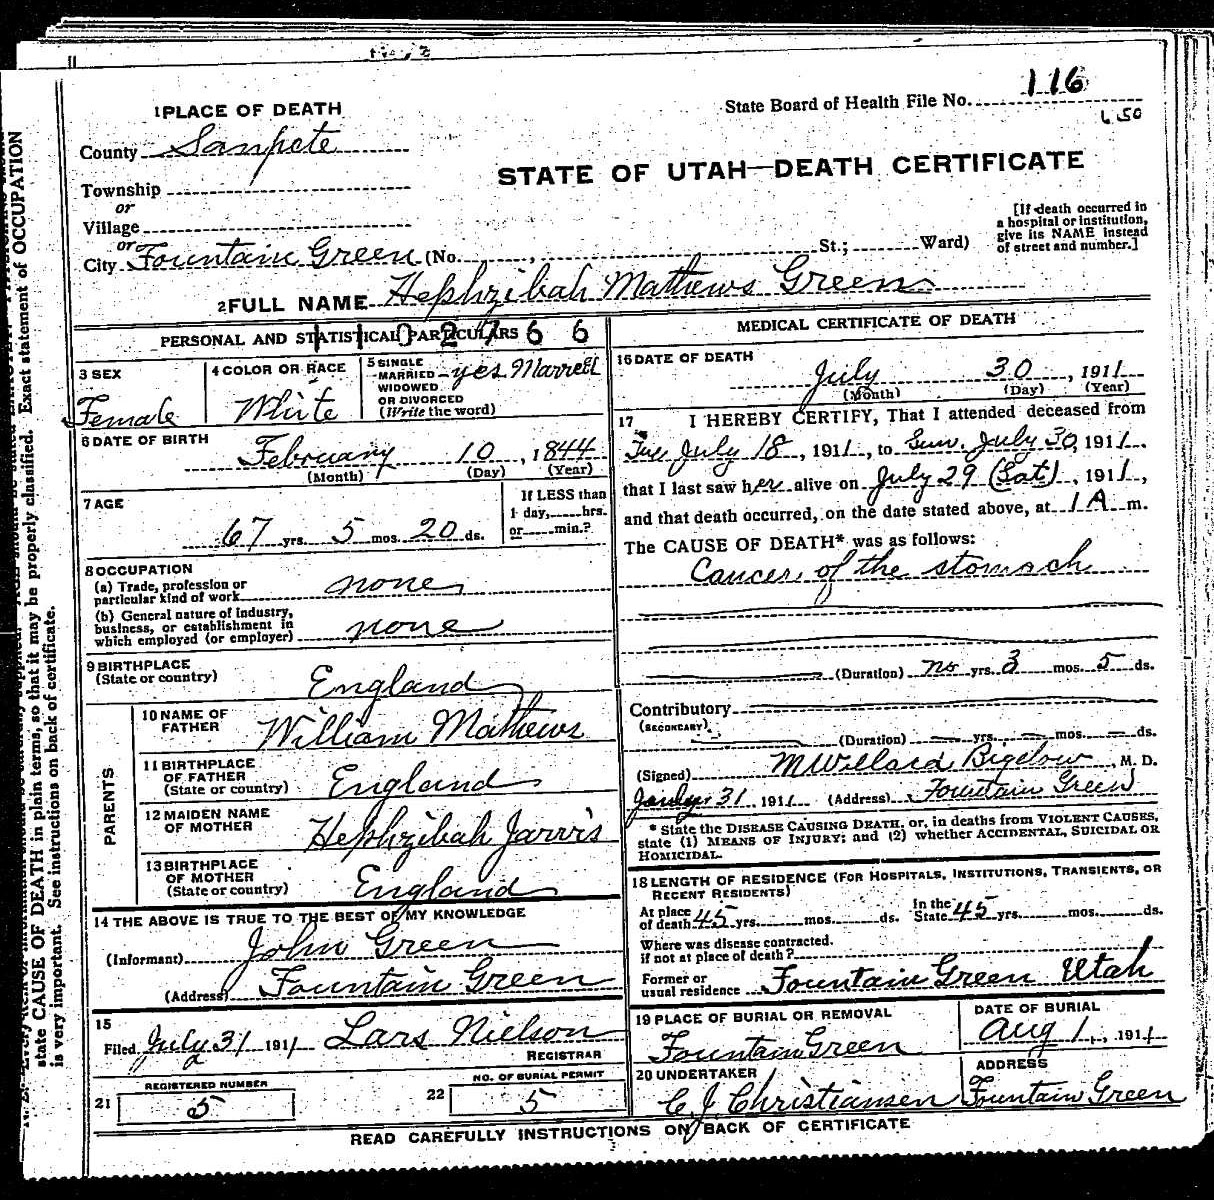 1 PLACE OF DEATH
State Board of Health File No. 116
County Sanpete
L 50
STATE OF UTAH—DEATH CERTIFICATE
Township
or
Village
or
City Fountain Green (No. , St.; Ward)
[If death occurred in
a hospital or institution,
give its NAME instead
of street and number.]
2 FULL NAME Hephzibah Mathews Green
PERSONAL AND STATISTICAL PARTICULARS
1102766
3 SEX
Female
4 COLOR OR RACE
White
5 SINGLE
MARRIED
WIDOWED
OR DIVORCED
(Write the word)
yes Married
6 DATE OF BIRTH
February 10, 1844
(Month) (Day) (Year)
7 AGE
67 yrs. 5 mos. 20 ds.
If LESS than
1 day, hrs.
or min.?
8 OCCUPATION
(a) Trade, profession or
particular kind of work none
(b) General nature of industry,
business, or establishment in
which employed (or employer) none
9 BIRTHPLACE
(State or country) England
PARENTS
10 NAME OF
FATHER William Mathews
11 BIRTHPLACE
OF FATHER
(State or country) England
12 MAIDEN NAME
OF MOTHER Hephzibah Jarvis
13 BIRTHPLACE
OF MOTHER
(State or country) England
14 THE ABOVE IS TRUE TO THE BEST OF MY KNOWLEDGE
(Informant) John Green
(Address) Fountain Green
15
Filed July 31 1911 Lars Nielson
REGISTRAR
REGISTERED NUMBER
21 5
NO. OF BURIAL PERMIT
22 5
MEDICAL CERTIFICATE OF DEATH
16 DATE OF DEATH
July 30, 1911
(Month) (Day) (Year)
17 I HEREBY CERTIFY, That I attended deceased from
Tue July 18, 1911, to Sun. July 30, 1911.
that I last saw her alive on July 29 (Sat), 1911,
and that death occurred, on the date stated above, at 1 A m.
The CAUSE OF DEATH* was as follows:
Cancer of the stomach
(Duration) no yrs. 3 mos. 5 ds.
Contributory
(SECONDARY)
(Duration) yrs. mos. ds.
(Signed) M Willard Bigelow, M. D.
July 31 1911 (Address) Fountain Green
* State the DISEASE CAUSING DEATH, or, in deaths from VIOLENT CAUSES,
state (1) MEANS OF INJURY; and (2) whether ACCIDENTAL, SUICIDAL OR
HOMICIDAL.
18 LENGTH OF RESIDENCE (FOR HOSPITALS, INSTITUTIONS, TRANSIENTS, OR
RECENT RESIDENTS)
At place
of death 45 yrs. mos. ds.
In the
State 45 yrs. mos. ds.
Where was disease contracted.
if not at place of death?
Former or
usual residence Fountain Green Utah
19 PLACE OF BURIAL OR REMOVAL
Fountain Green
DATE OF BURIAL
Aug 1, 1911
20 UNDERTAKER
C. J. Christiansen
ADDRESS
Fountain Green
READ CAREFULLY INSTRUCTIONS ON BACK OF CERTIFICATE
Exact statement of OCCUPATION
state CAUSE OF DEATH in plain terms, so that it may be properly classified.
is very important. See instructions on back of certificate.